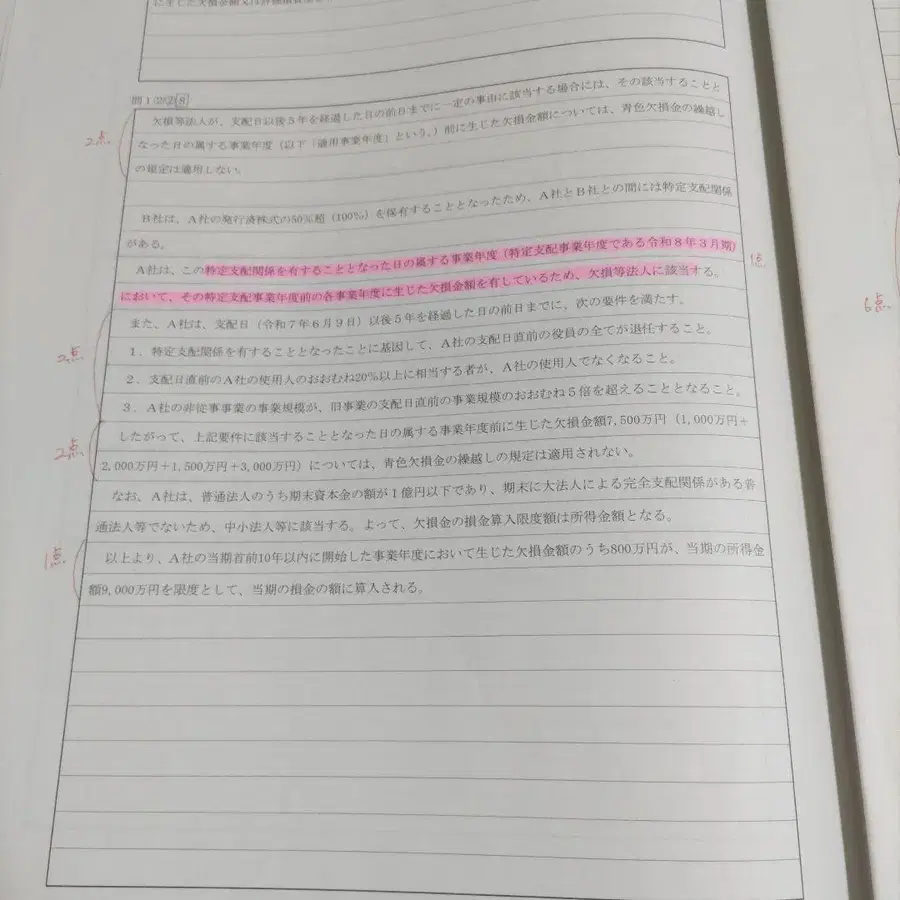 に生じた欠損金額又は評価損資産
問1 (2)② 8
欠損等法人が、支配日以後5年を経過した日の前日までに一定の事由に該当する場合には、その該当することと
なった日の属する事業年度（以下「適用事業年度」という。）前に生じた欠損金額については、青色欠損金の繰越し
の規定は適用しない。
2点
B社は、A社の発行済株式の50％超（100％）を保有することとなったため、A社とB社との間には特定支配関係
がある。
A社は、この特定支配関係を有することとなった日の属する事業年度（特定支配事業年度である令和8年3月期）
において、その特定支配事業年度前の各事業年度に生じた欠損金額を有しているため、欠損等法人に該当する。
1点
また、A社は、支配日（令和7年6月9日）以後5年を経過した日の前日までに、次の要件を満たす。
1．特定支配関係を有することとなったことに基因して、A社の支配日直前の役員の全てが退任すること。
2．支配日直前のA社の使用人のおおむね20％以上に相当する者が、A社の使用人でなくなること。
3．A社の非従事事業の事業規模が、旧事業の支配日直前の事業規模のおおむね5倍を超えることとなること。
2点
したがって、上記要件に該当することとなった日の属する事業年度前に生じた欠損金額7,500万円（1,000万円＋
2,000万円＋1,500万円＋3,000万円）については、青色欠損金の繰越しの規定は適用されない。
2点
なお、A社は、普通法人のうち期末資本金の額が1億円以下であり、期末に大法人による完全支配関係がある普
通法人等でないため、中小法人等に該当する。よって、欠損金の損金算入限度額は所得金額となる。
以上より、A社の当期首前10年以内に開始した事業年度において生じた欠損金額のうち800万円が、当期の所得金
額9,000万円を限度として、当期の損金の額に算入される。
1点
6点